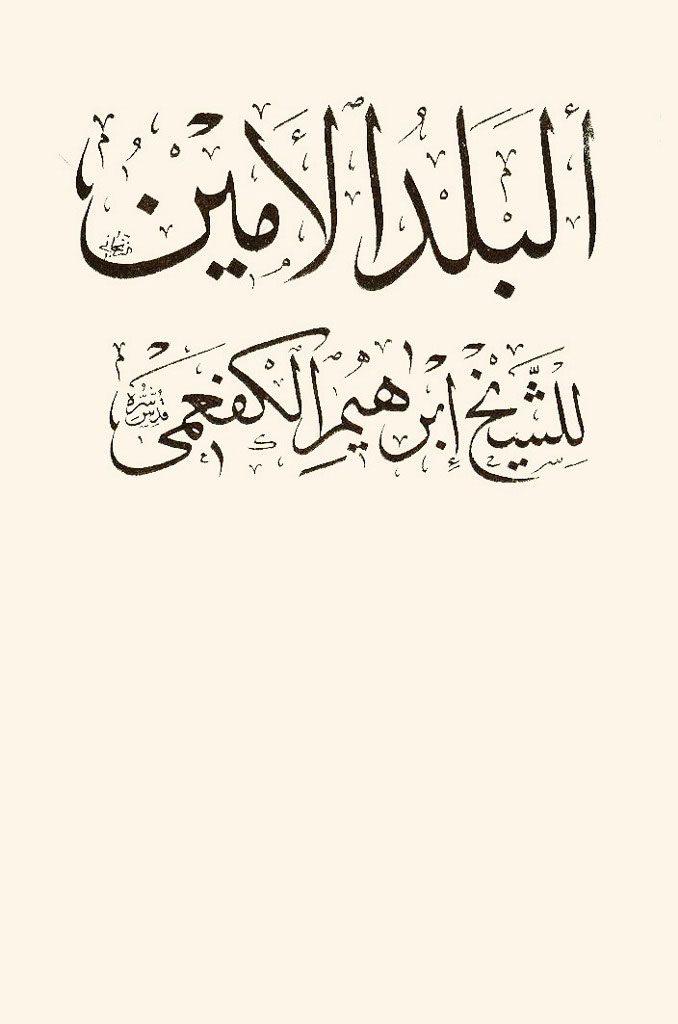 ألبَلَدُ الأَمِيْن
لِلشَّيْخ إِبْرَاهِيْمِ الكَفْعَمِي قُدِّسَ سِرُّهُ